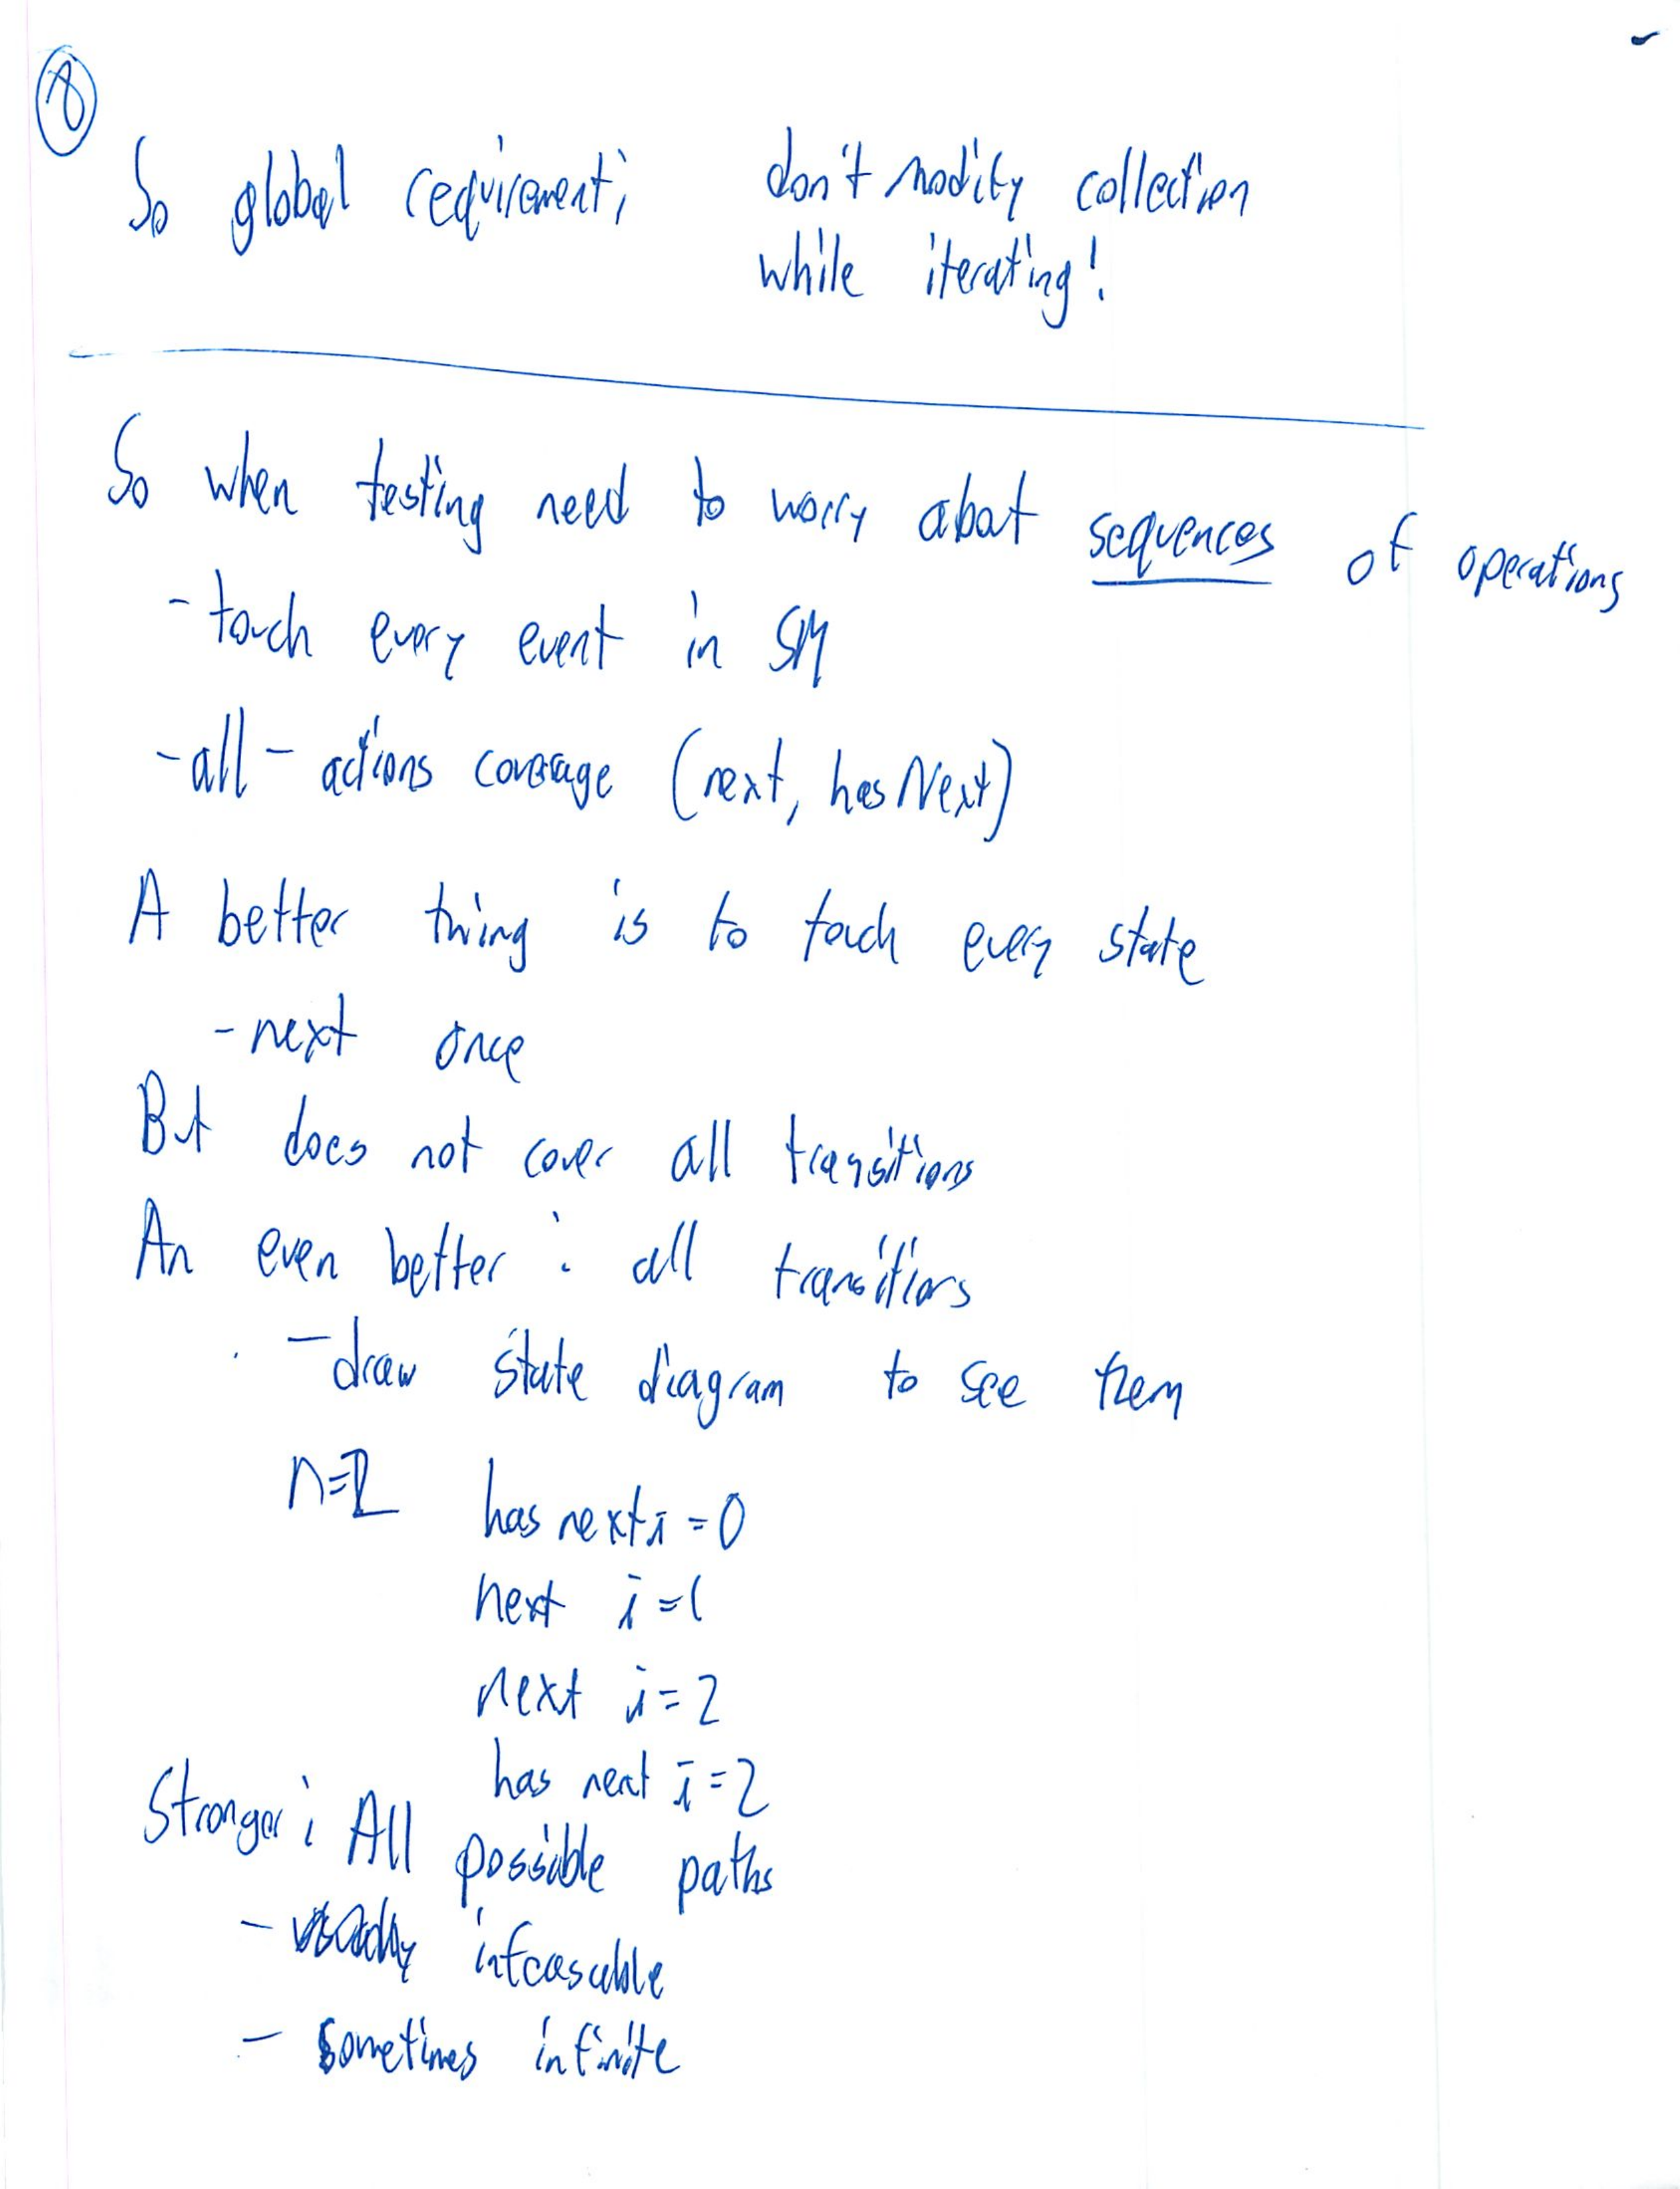 8
So global requirement; don't modify collection
while iterating!
So when testing need to worry about sequences of operations
- touch every event in SM
- all - actions coverage (next, hasNext)
A better thing is to touch every state
- next once
But does not cover all transitions
An even better : all transitions
- draw state diagram to see them
n=2 has next i=0
next i=1
next i=2
has next i=2
Stronger : All possible paths
- usually infeasable
- sometimes infinite